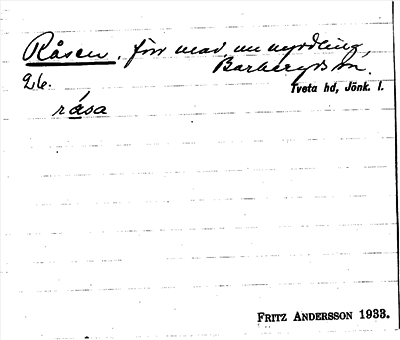 Råsen, förr mad, nu nyodling,
Barkeryds sn.
26. Tveta hd, Jönk. l.
råsa
FRITZ ANDERSSON 1933.